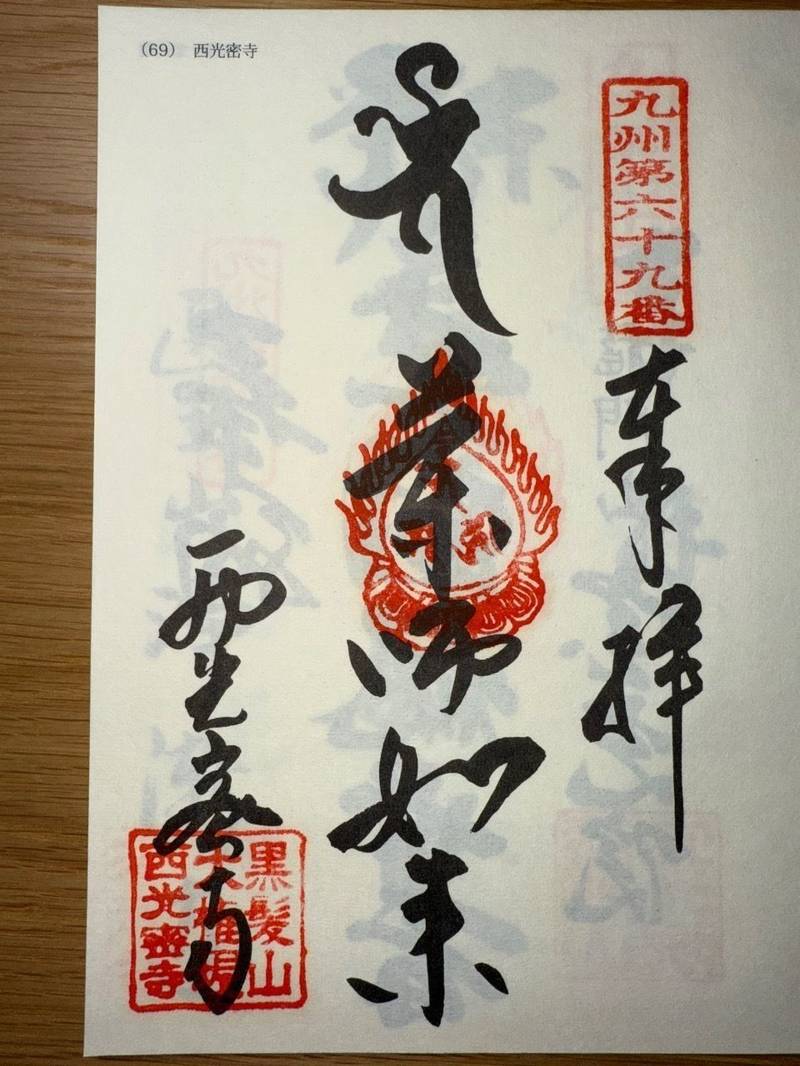 (69) 西光密寺
九州第六十九番
奉拝
薬師如来
西光密寺
黒髪山
大権現
西光密寺